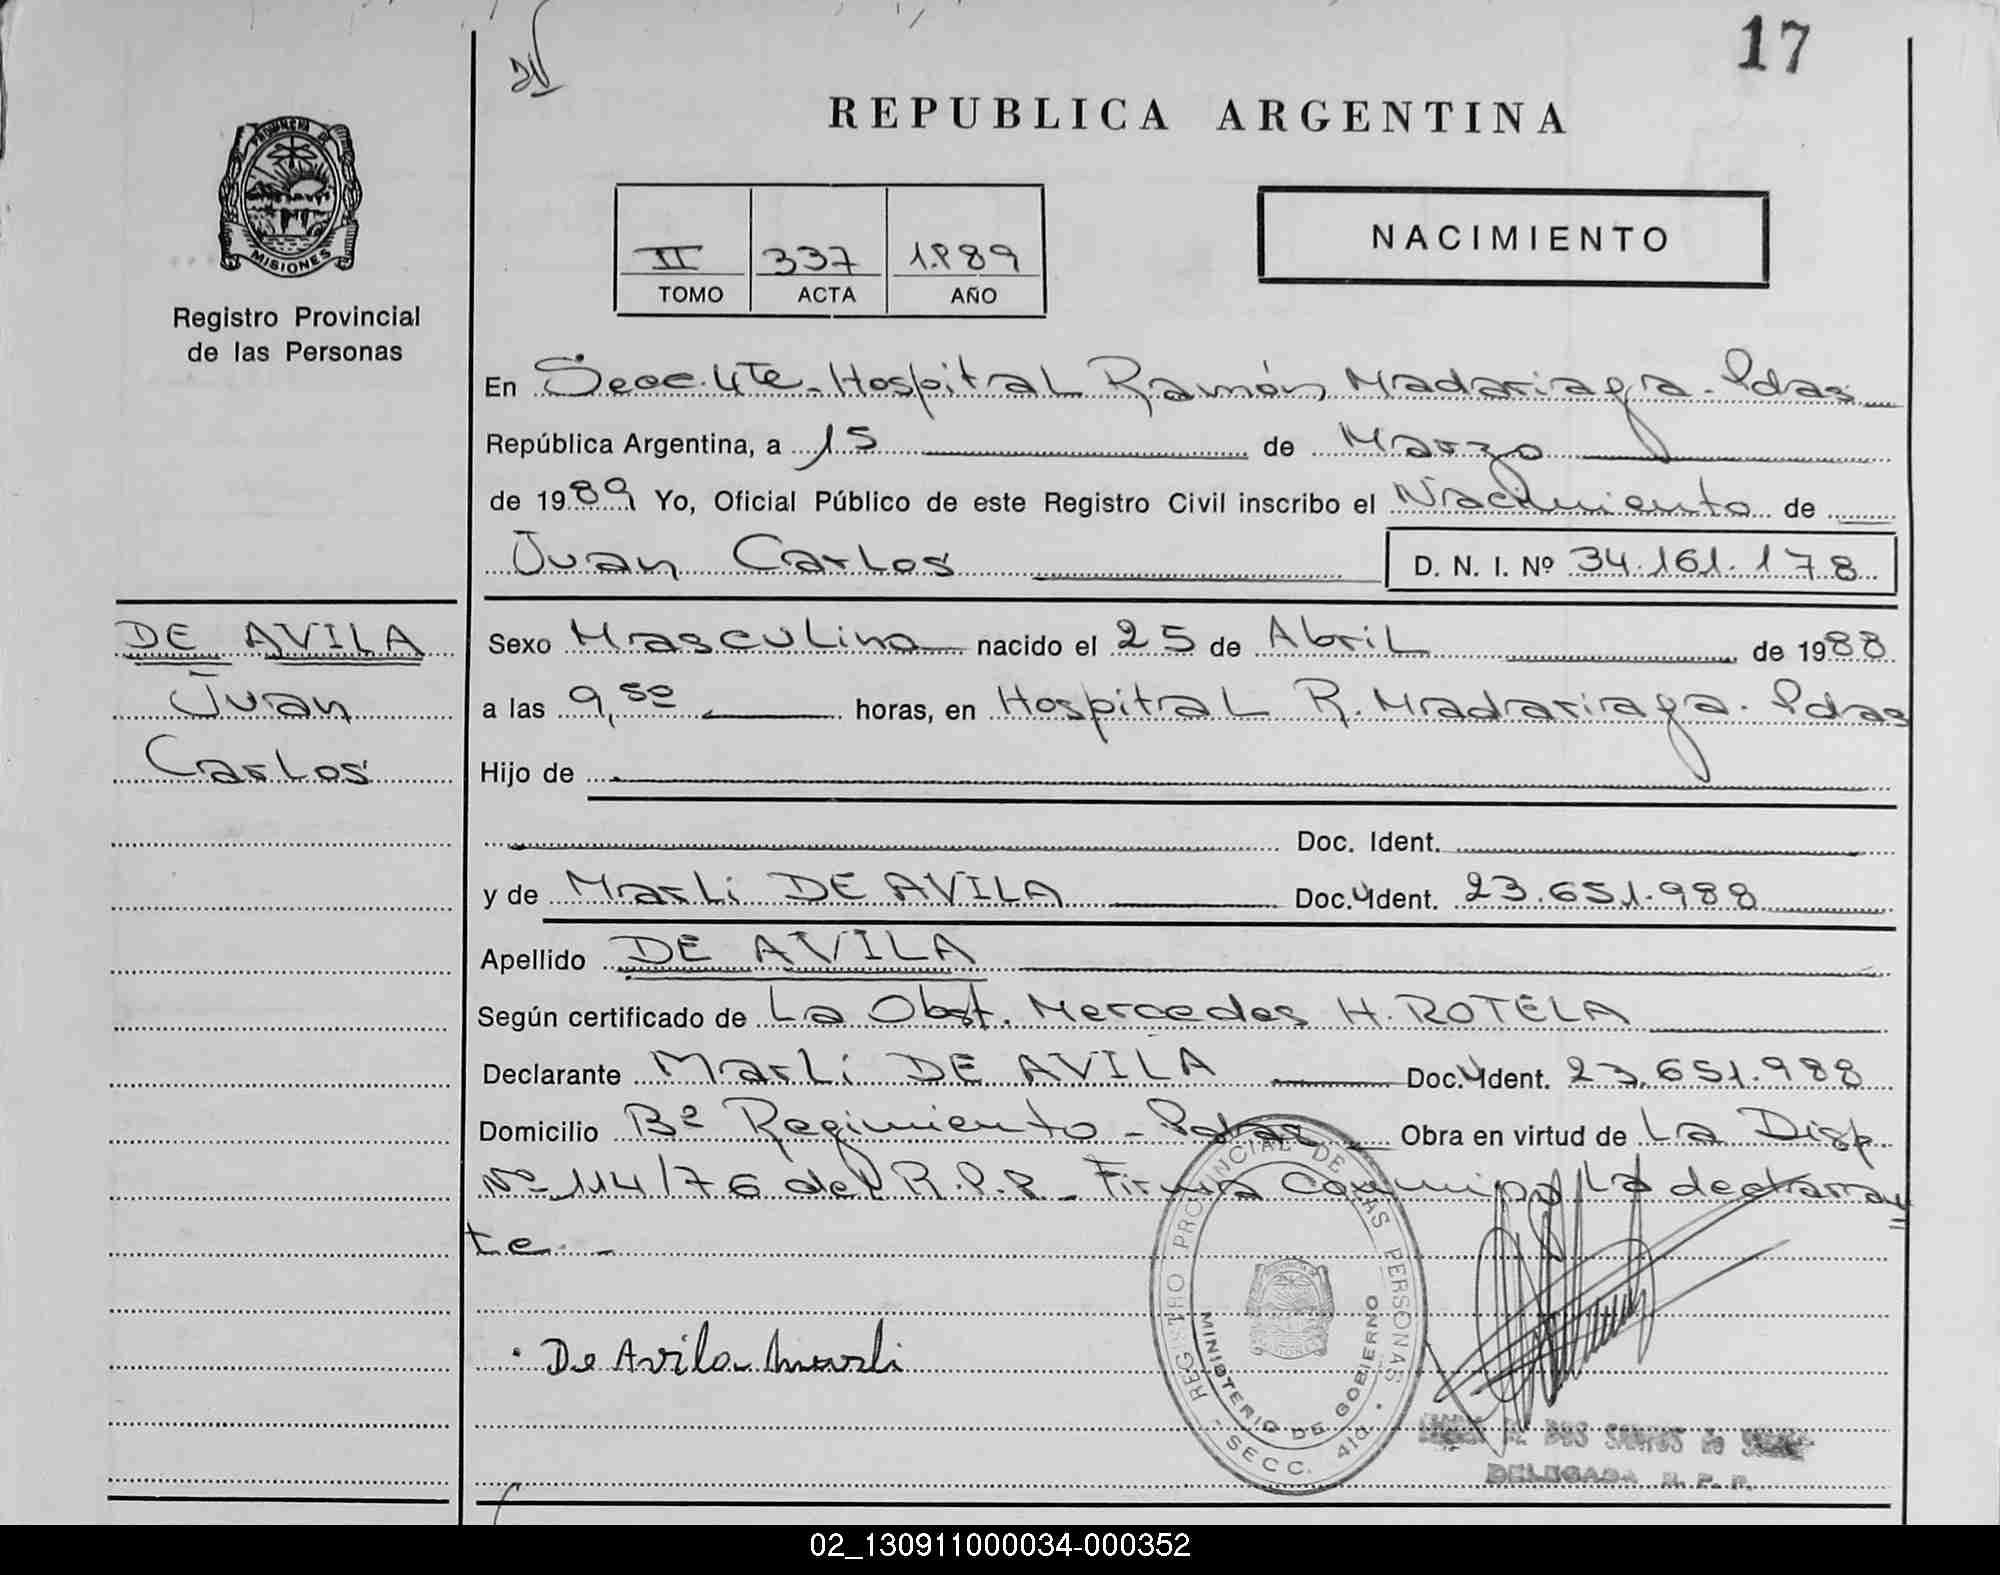 17
REPUBLICA ARGENTINA
PROVINCIA DE
MISIONES
Registro Provincial
de las Personas
NACIMIENTO
II 337 1.989
TOMO ACTA AÑO
En Secc. 4ta. Hospital Ramón Madariaga. Pdas
República Argentina, a 15 de Marzo
de 1989 Yo, Oficial Público de este Registro Civil inscribo el Nacimiento de
Juan Carlos D. N. I. Nº 34.161.178
DE AVILA
Juan
Carlos
Sexo Masculino nacido el 25 de Abril de 1988
a las 9,50 horas, en Hospital R. Madariaga. Pdas
Hijo de
Doc. Ident.
y de Marli DE AVILA Doc. Ident. 23.651.988
Apellido DE AVILA
Según certificado de La Obst. Mercedes H. ROTELA
Declarante Marli DE AVILA Doc. Ident. 23.651.988
Domicilio Bº Regimiento - Pdas Obra en virtud de La Disp.
Nº 114/76 del R.P.P. - Firma Conmigo La declaran
te. -
De Avila Marli
REGISTRO PROVINCIAL DE LAS PERSONAS
MINISTERIO DE GOBIERNO
- SECC. 4ta. -
DOS SANTOS de
DELEGADA R. P. P.
02_130911000034-000352